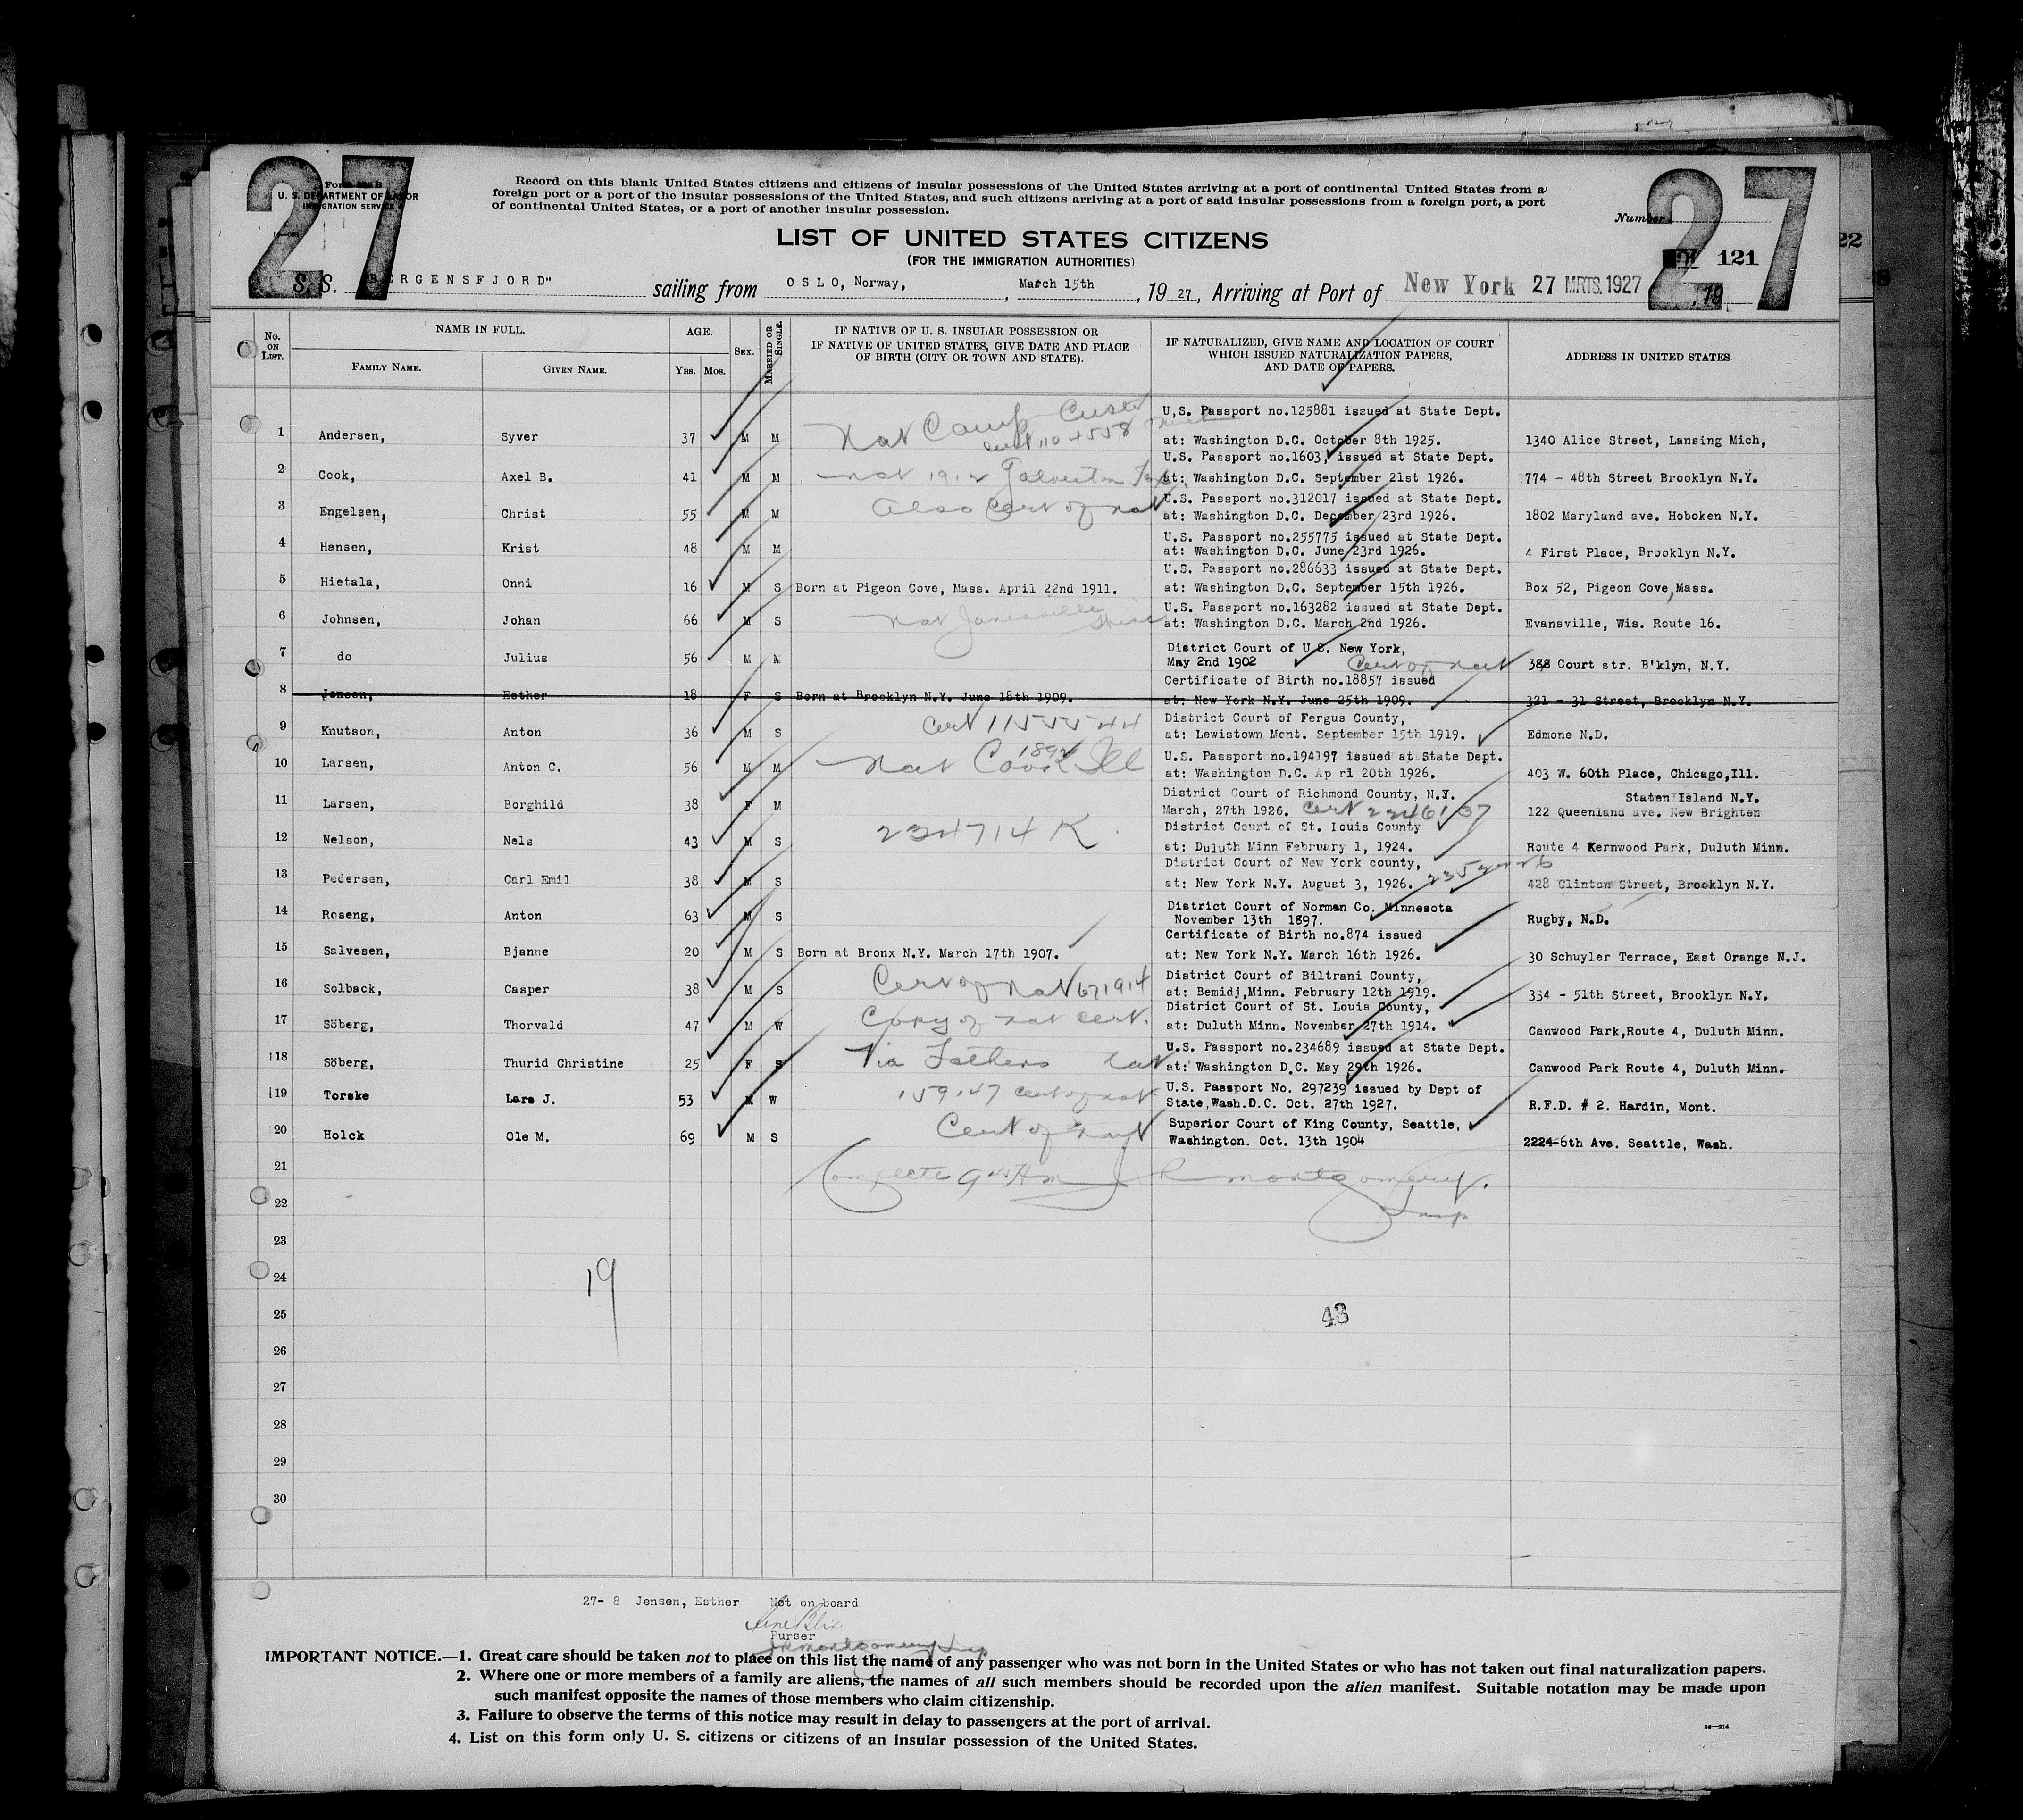 27
27
Form 630 B
U. S. DEPARTMENT OF LABOR
IMMIGRATION SERVICE
Record on this blank United States citizens and citizens of insular possessions of the United States arriving at a port of continental United States from a
foreign port or a port of the insular possessions of the United States, and such citizens arriving at a port of said insular possessions from a foreign port, a port
of continental United States, or a port of another insular possession.
Number
LIST OF UNITED STATES CITIZENS
(FOR THE IMMIGRATION AUTHORITIES)
121
S. S. BERGENSFJORD" sailing from OSLO, Norway, , March 15th , 19 27, Arriving at Port of New York 27 MRTS. 1927 , 19
No. ON LIST. NAME IN FULL. AGE. SEX. MARRIED OR SINGLE. IF NATIVE OF U. S. INSULAR POSSESSION OR IF NATIVE OF UNITED STATES, GIVE DATE AND PLACE OF BIRTH (CITY OR TOWN AND STATE). IF NATURALIZED, GIVE NAME AND LOCATION OF COURT WHICH ISSUED NATURALIZATION PAPERS, AND DATE OF PAPERS. ADDRESS IN UNITED STATES
FAMILY NAME. GIVEN NAME. YRS. MOS.
Nat Camp Custer
cert no 4558 Mich
U.S. Passport no.125881 issued at State Dept.
1 Andersen, Syver 37 M M at: Washington D.C. October 8th 1925. 1340 Alice Street, Lansing Mich,
U.S. Passport no.1603, issued at State Dept.
2 Cook, Axel B. 41 M M nat 1912 Galveston Tex at: Washington D.C. September 21st 1926. 774 - 48th Street Brooklyn N.Y.
U.S. Passport no.312017 issued at State Dept.
3 Engelsen, Christ 55 M M Also Cert of nat at: Washington D.C. December 23rd 1926. 1802 Maryland ave. Hoboken N.Y.
U.S. Passport no.255775 issued at State Dept.
4 Hansen, Krist 48 M M at: Washington D.C. June 23rd 1926. 4 First Place, Brooklyn N.Y.
U.S. Passport no.286633 issued at State Dept.
5 Hietala, Onni 16 M S Born at Pigeon Cove, Mass. April 22nd 1911. at: Washington D.C. September 15th 1926. Box 52, Pigeon Cove, Mass.
U.S. Passport no.163282 issued at State Dept.
6 Johnsen, Johan 66 M S nat Janesville at: Washington D.C. March 2nd 1926. Evansville, Wis. Route 16.
District Court of U.S. New York,
7 do Julius 56 M M May 2nd 1902 Cert of nat 388 Court str. B'klyn, N.Y.
Certificate of Birth no.18857 issued
8 Jensen, Esther 18 F S Born at Brooklyn N.Y. June 18th 1909. at: New York N.Y. June 25th 1909. 321 - 31 Street, Brooklyn N.Y.
District Court of Fergus County,
9 Knutson, Anton 36 M S Cert 1155544 at: Lewistown Mont. September 15th 1919. Edmone N.D.
U.S. Passport no.194197 issued at State Dept.
10 Larsen, Anton C. 56 M M Nat Cook Ill 1892 at: Washington D.C. Ap rl 20th 1926. 403 W. 60th Place, Chicago,Ill.
District Court of Richmond County, N.Y. Staten Island N.Y.
11 Larsen, Borghild 38 F M March, 27th 1926. Cert 2246137 122 Queenland ave. New Brighten
District Court of St. Louis County
12 Nelson, Nels 43 M S 234714 K at: Duluth Minn February 1, 1924. Route 4 Kernwood Park, Duluth Minn.
District Court of New York county,
13 Pedersen, Carl Emil 38 M S at: New York N.Y. August 3, 1926. 428 Clinton Street, Brooklyn N.Y.
District Court of Norman Co. Minnesota
14 Roseng, Anton 63 M S November 13th 1897. Rugby, N.D.
Certificate of Birth no.874 issued
15 Salvesen, Bjanne 20 M S Born at Bronx N.Y. March 17th 1907. at: New York N.Y. March 16th 1926. 30 Schuyler Terrace, East Orange N.J.
District Court of Biltrani County,
16 Solback, Casper 38 M S Cert of Nat 671914 at: Bemidj,Minn. February 12th 1919. 334 - 51th Street, Brooklyn N.Y.
District Court of St. Louis County,
17 Söberg, Thorvald 47 M W Copy of nat cert. at: Duluth Minn. November 27th 1914. Canwood Park,Route 4, Duluth Minn.
U.S. Passport no.234689 issued at State Dept.
18 Söberg, Thurid Christine 25 F S Via Fathers nat at: Washington D.C. May 29th 1926. Canwood Park Route 4, Duluth Minn.
U.S. Passport No. 297239 issued by Dept of
19 Torske Lars J. 53 M W 159147 cert of nat State,Wash.D.C. Oct. 27th 1927. R.F.D. # 2. Hardin, Mont.
Superior Court of King County, Seattle,
20 Holck Ole M. 69 M S Cert of nat Washington. Oct. 13th 1904 2224-6th Ave. Seattle, Wash.
21 Complete 9 45 Am J R Montgomery.
22 Insp
23
24 19
25 43
26
27
28
29
30
27- 8 Jensen, Esther Not on board
Purser
JR Montgomery Insp
IMPORTANT NOTICE.—1. Great care should be taken not to place on this list the name of any passenger who was not born in the United States or who has not taken out final naturalization papers.
2. Where one or more members of a family are aliens, the names of all such members should be recorded upon the alien manifest. Suitable notation may be made upon
such manifest opposite the names of those members who claim citizenship.
3. Failure to observe the terms of this notice may result in delay to passengers at the port of arrival.
4. List on this form only U. S. citizens or citizens of an insular possession of the United States.
14—214